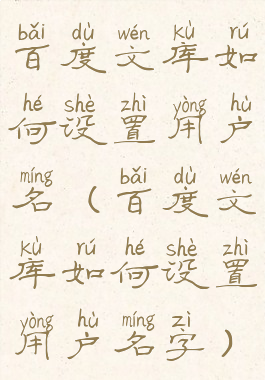 bǎi dù wén kù rú
百度文库如
hé shè zhì yòng hù
何设置用户
míng bǎi dù wén
名（百度文
kù rú hé shè zhì
库如何设置
yòng hù míng zì
用户名字）